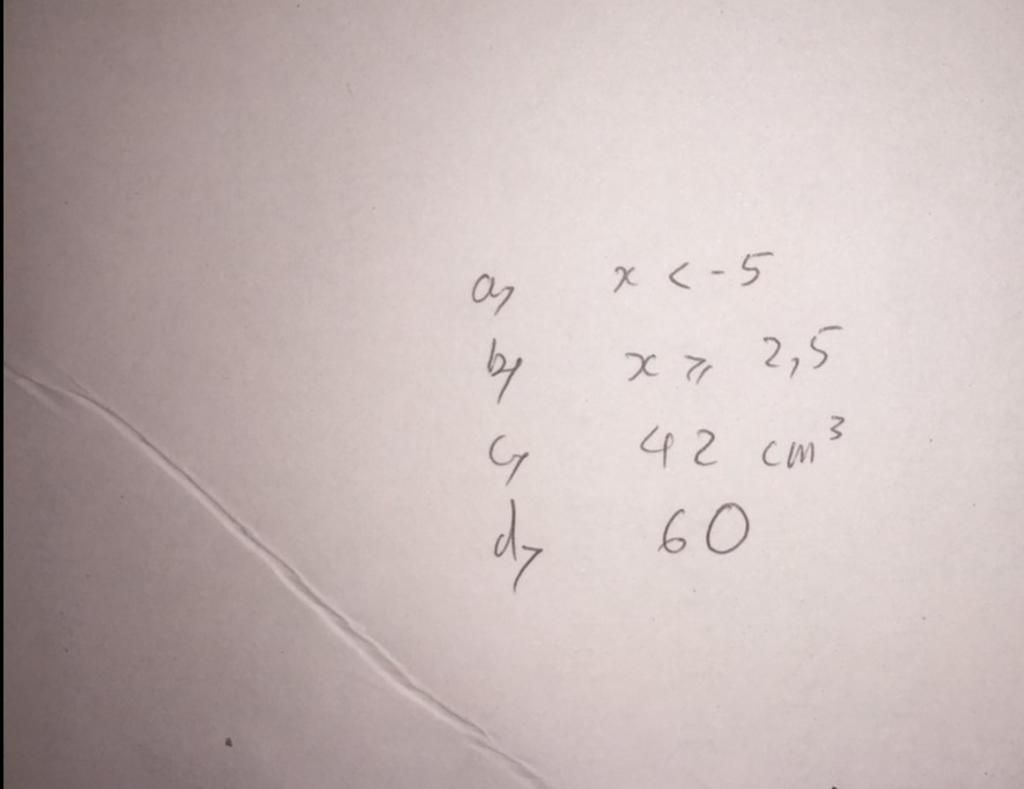 a, x < -5
b, x ⩾ 2,5
c, 42 cm³
d, 60